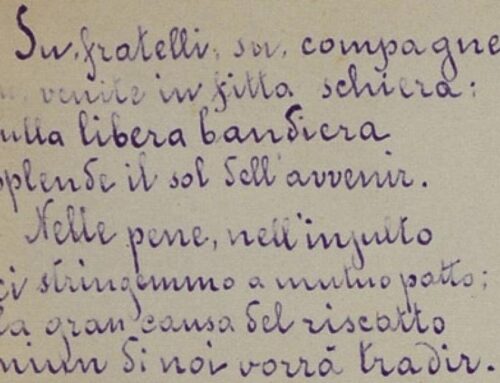 Su, fratelli, su, compagne
su, venite in fitta schiera:
ulla libera bandiera
splende il sol dell'avvenir.
Nelle pene, nell'insulto
ci stringemmo a mutuo patto;
la gran causa del riscatto
niun di noi vorrà tradir.